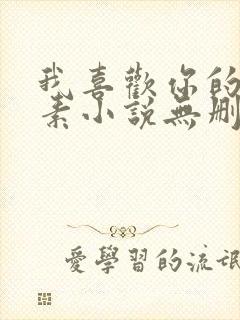 我喜歡你的
素小説無刪
愛學習的流氓